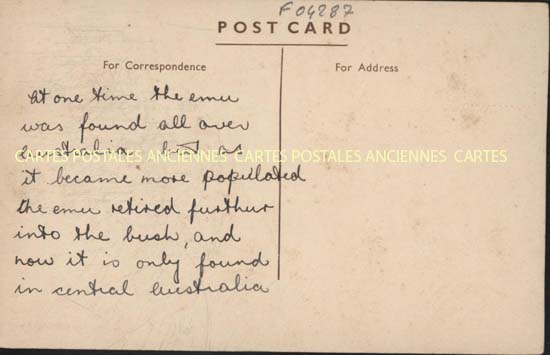 F 04287
POST CARD
For Correspondence
For Address
At one time the emu
was found all over
Australia but as
CARTES POSTALES ANCIENNES CARTES POSTALES ANCIENNES CARTES
it became more populated
the emu retired furthur
into the bush, and
now it is only found
in central Australia